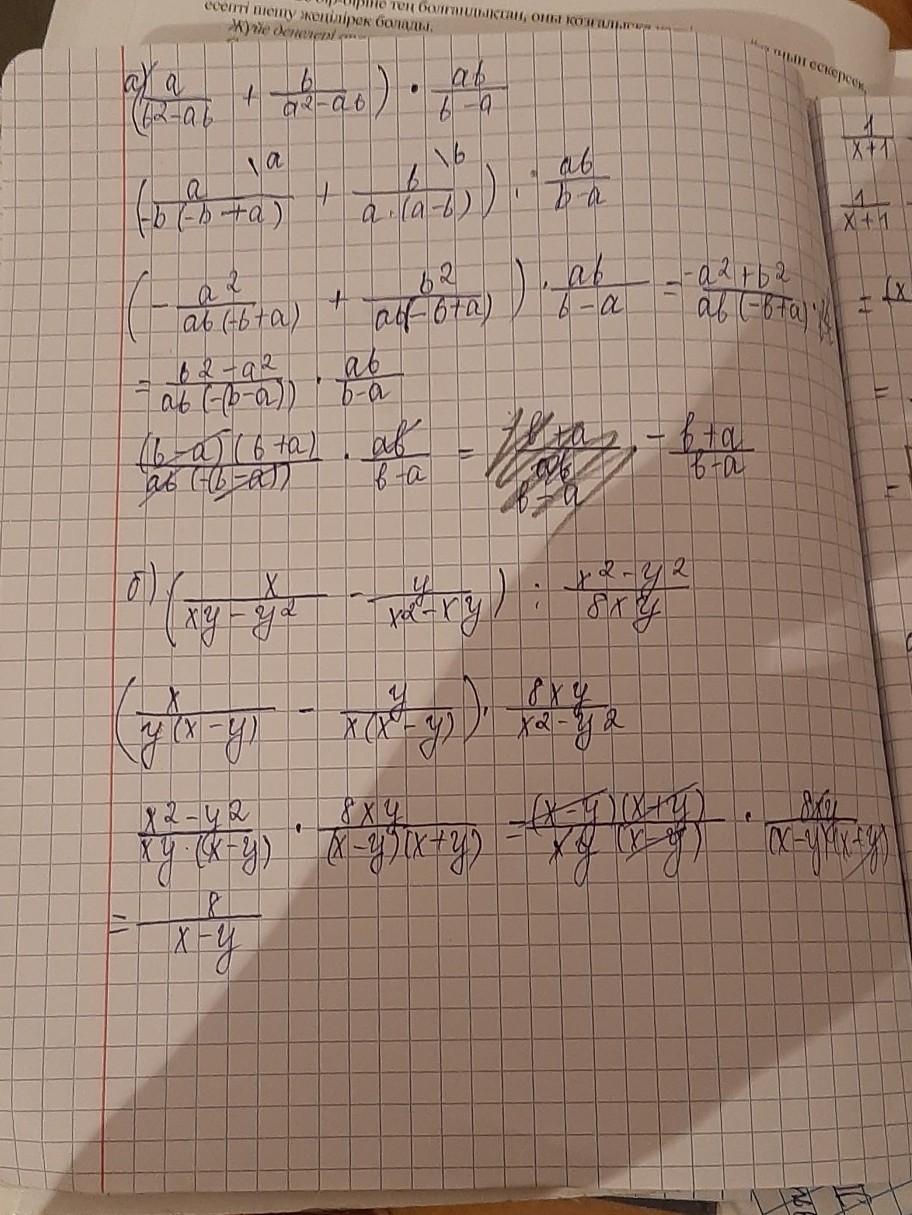 тең болғандықтан, оны
есепті шешу жеңілірек болады.
Жүйе денелері
ескерсек,
а) (a/(b2-ab) + b/(a2-ab)) · ab/(b-a)
(a\a/(-b(-b+a)) + b\b/(a·(a-b))) · ab/(b-a)
(-a2/(ab(-b+a)) + b2/(ab(-b+a))) · ab/(b-a) = (-a2+b2)/(ab(-b+a)) ·
= (b2-a2)/(ab(-(b-a))) · ab/(b-a)
(b-a)(b+a)/(ab(-(b-a))) · ab/(b-a) = - (b+a)/(b-a)
б) (x/(xy-y2) - y/(x2-xy)) : (x2-y2)/(8xy)
(x/(y(x-y)) - y/(x(x-y))) · 8xy/(x2-y2)
(x2-y2)/(xy·(x-y)) · 8xy/((x-y)(x+y)) = (x-y)(x+y)/(xy(x-y)) · 8xy/((x-y)(x+y))
= 8/(x-y)
1/(x+1)
1/(x+1) -
= (x
=
=